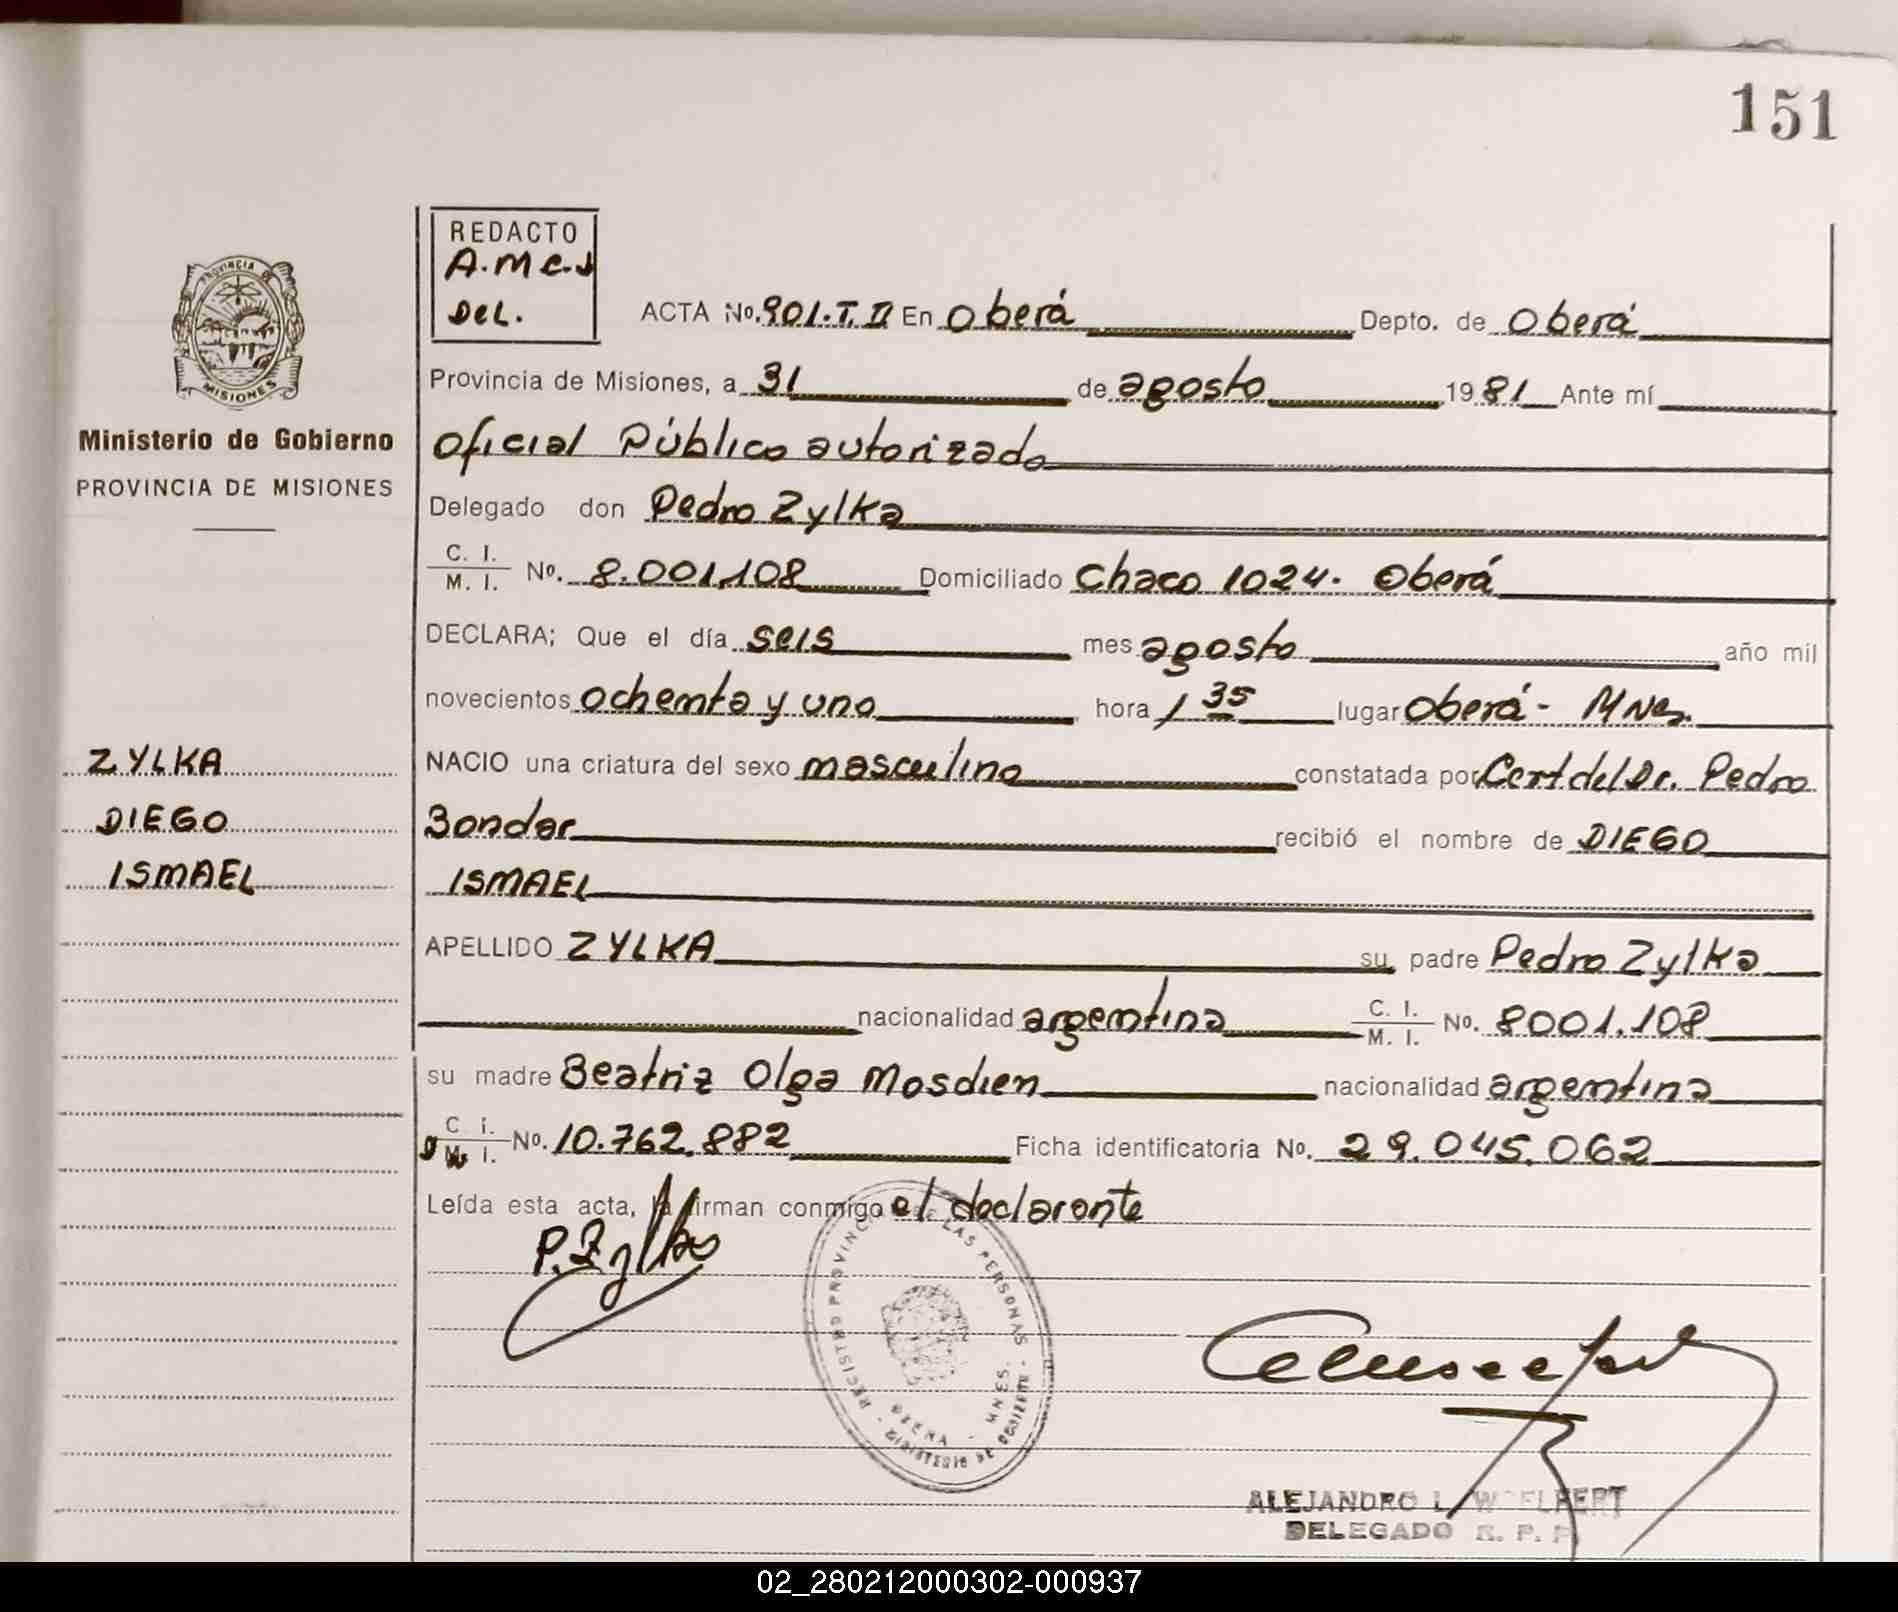 151
REDACTO
A.M C.
DEL.
PROVINCIA DE
MISIONES
ACTA No. 901.T.II En Oberá Depto. de Oberá
Provincia de Misiones, a 31 de agosto 1981 Ante mí
Ministerio de Gobierno
PROVINCIA DE MISIONES
Oficial Público autorizado
Delegado don Pedro Zylka
C. I.
M. I. No. 8.001.108 Domiciliado Chaco 1024. Oberá
DECLARA; Que el día seis mes agosto año mil
novecientos ochenta y uno hora 1 35 lugar Oberá - MNes.
ZYLKA
DIEGO
ISMAEL
NACIO una criatura del sexo masculino constatada por Cert del Dr. Pedro
Bondar recibió el nombre de DIEGO
ISMAEL
APELLIDO ZYLKA su padre Pedro Zylka
nacionalidad argentina C. I. M. I. No. 8001.108
su madre Beatriz Olga Mosdien nacionalidad argentina
C. I. M. I. No. 10.762.882 Ficha identificatoria No. 29.045.062
Leída esta acta, la firman conmigo el declarante
P. Zylka
REGISTRO PROVINCIAL DE LAS PERSONAS - MINISTERIO DE GOBIERNO
OBERA - MNES.
ALEJANDRO L. WOELFERT
DELEGADO R. P. P.
02_280212000302-000937